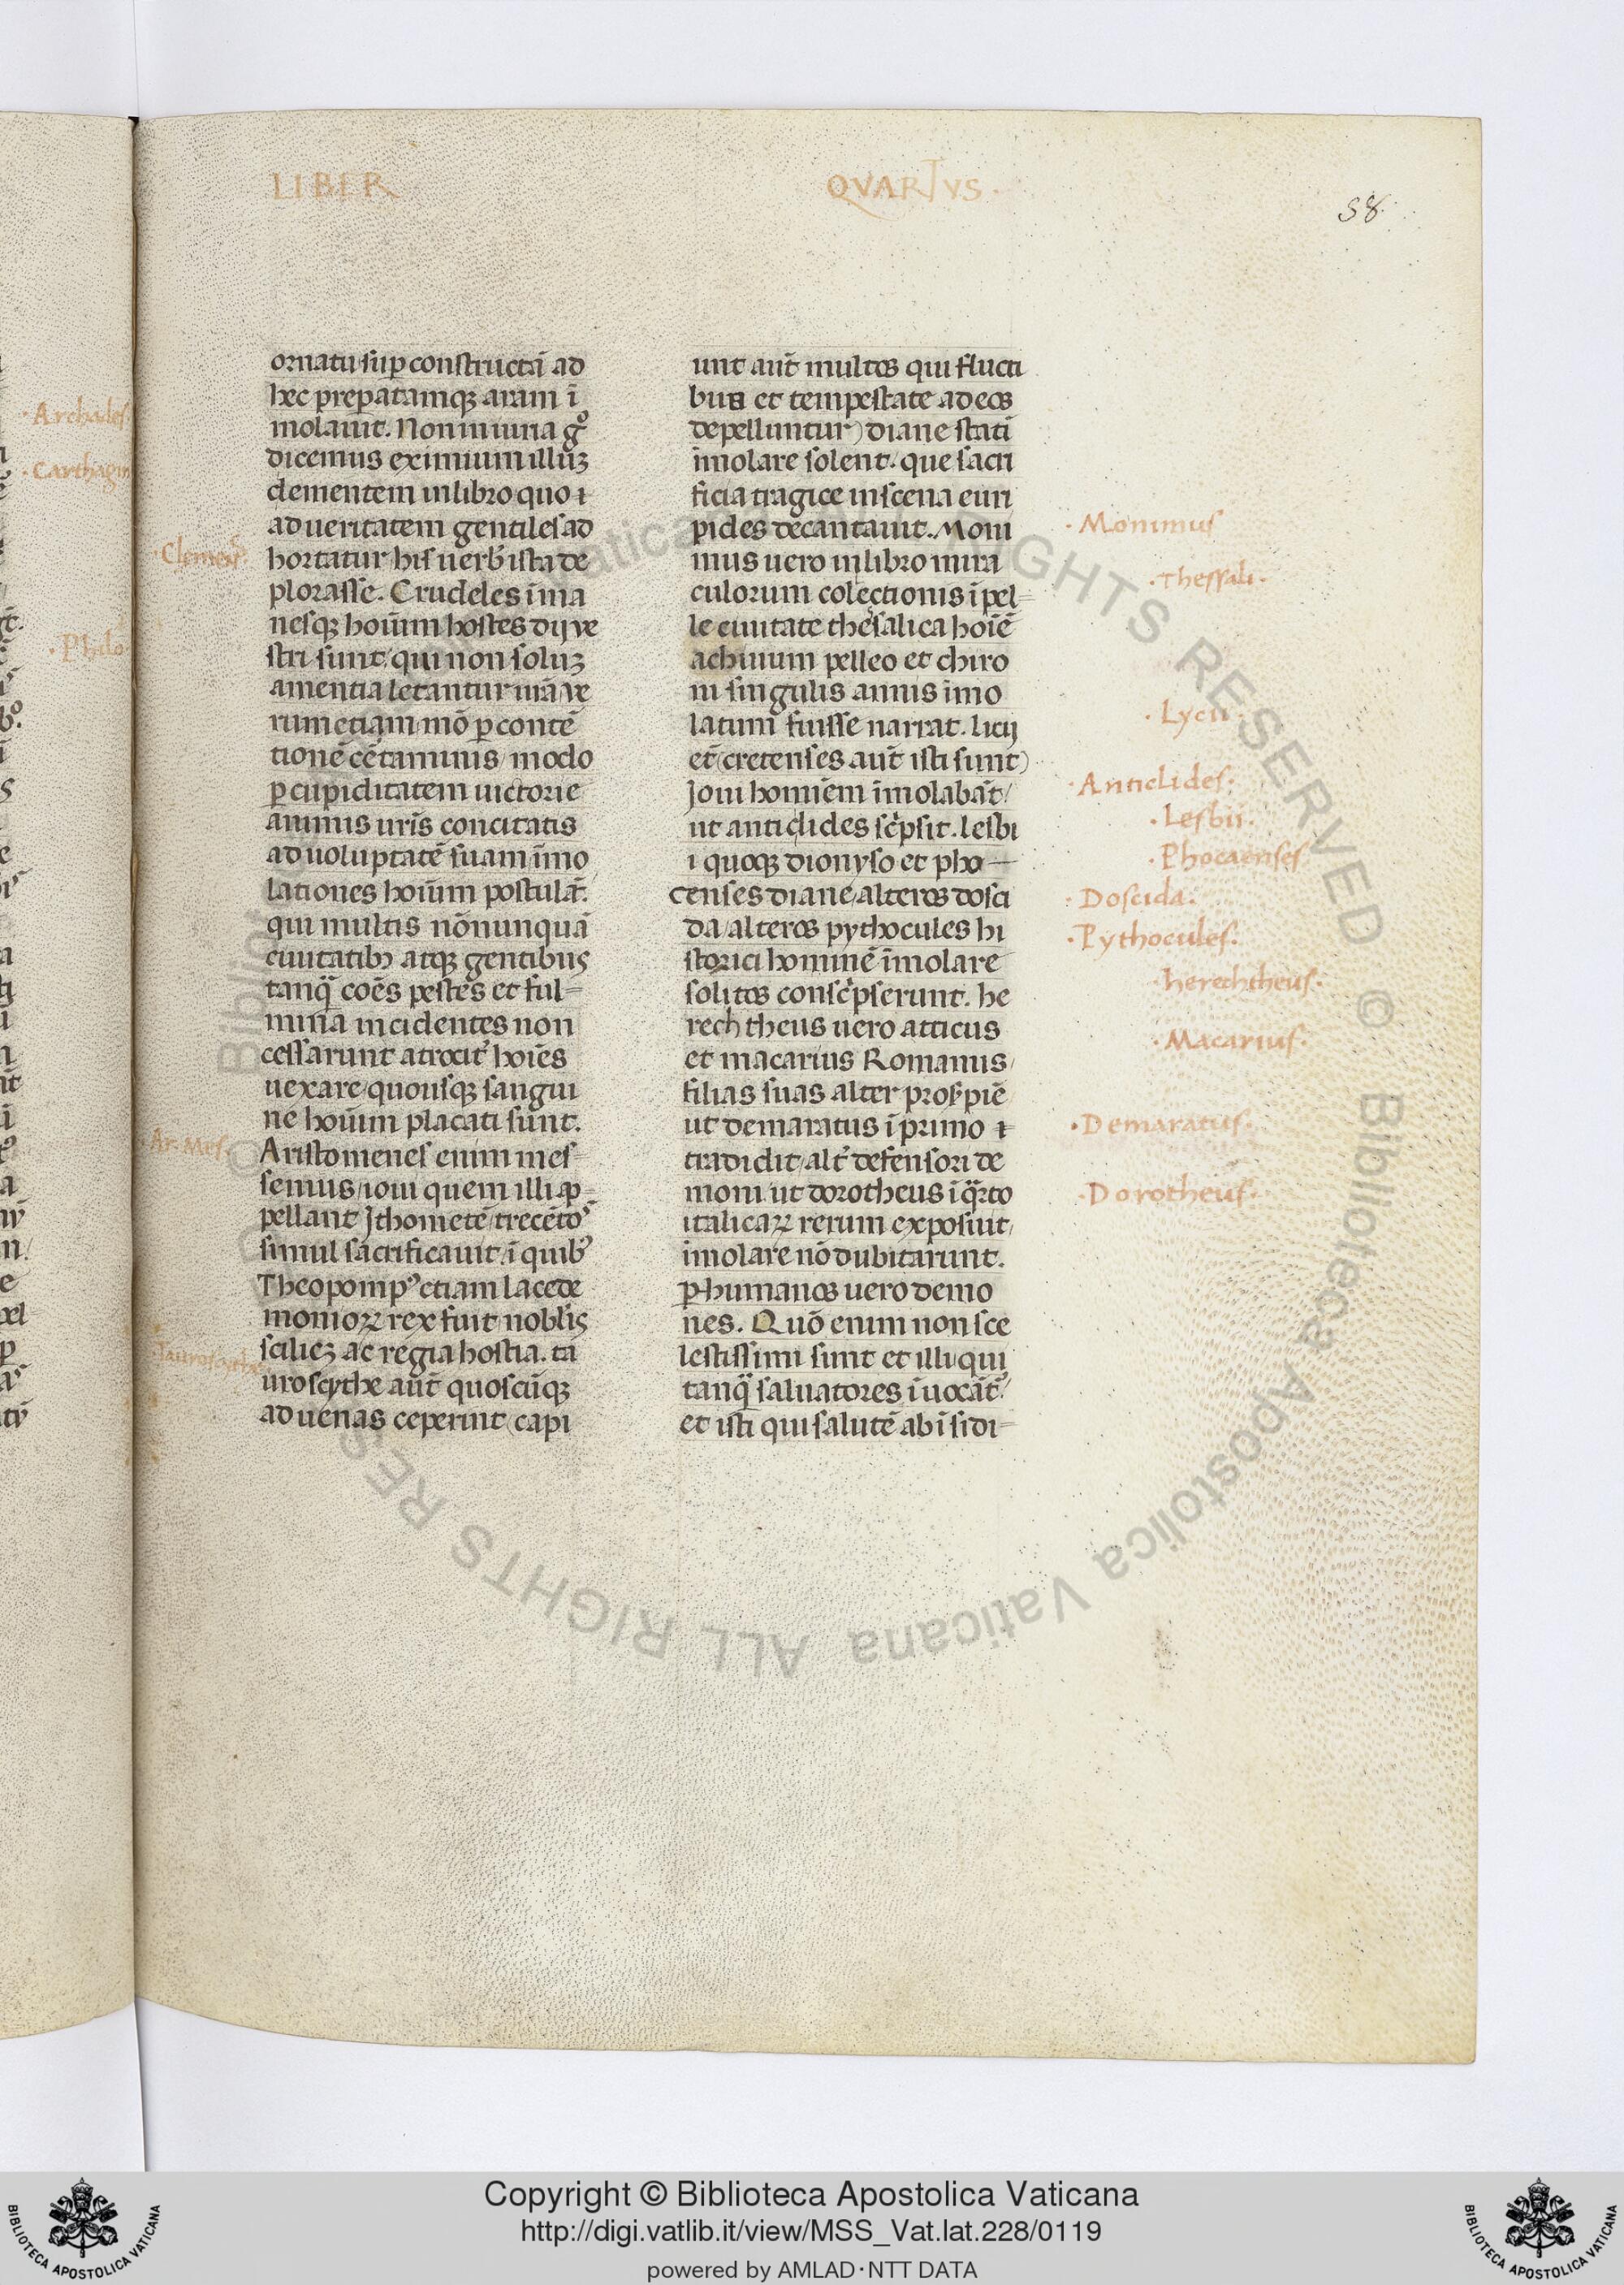 LIBER QVARTVS.
58.
Archades.
Carthagin
Philo
ornatu sup constructā ad
hec preparatamqꝫ aram ī
molauit. Non iniuria gº
dicemus eximium illuꝫ
clementem in libro quo ⁊
ad ueritatem gentiles ad
hortatur his uerb ista de
plorasse. Crudeles ī ma
nesqꝫ hoīum hostes dij ve
stri sunt qui non soluꝫ
amentia letantur urā ve
rum etiam mō ꝑ contē
tionē cētaminis modo
ꝑ cupiditatem uictorie
animis uris concitatis
ad uoluptatē suam īmo
lationes hoīum postulāt.
qui multis nōnunquā
ciuitatibꝫ atqꝫ gentibus
tanq̄ coēs pestes et ful=
mina incidentes non
cessarunt atrocit hoīes
uexare quousqꝫ sangui
ne hoīum placati sunt.
Aristomenes enim mes=
senius ioui quem illi ap=
pellant Jthometē trecētos
simul sacrificauit ī quib
Theopompꝰ etiam lacede
monioꝝ rex fuit nobilis
scilicꝫ ac regia hostia. ta
uroscythe aūt quoscūqꝫ
aduenas ceperint capi
Clemens
Ar. Mes.
Tauroscythe
unt aūt multos qui flucti
bus et tempestate ad eos
depelluntur) diane statī
īmolare solent. que sacri
ficia tragice in scena euri
pides decantauit. Moni
mus uero in libro mira
culorum colectionis ī pel=
le ciuitate thesalica hoīē
achiuum pelleo et chiro
ni singulis annis īmo
latum fuisse narrat. licij
et (cretenses aūt isti sunt)
Joui homīem īmolabāt
ut anticlides scpsit. lesbi
i quoqꝫ dionyso et pho—
censes diane alteros dosci
da alteros pythocules hi
storici hominē īmolare
solitos conscpserunt. he
rechtheus uero atticus
et macarius Romanus
filias suas alter prosꝑpiē
ut demaratus ī primo ⁊
tradidit alt defensori de
moni ut dorotheus ī qrto
italicaꝝ rerum exposuit
īmolare nō dubitarunt.
ꝓ humanos uero demo
nes. Quō enim non sce
lestissimi sunt et illi qui
tanq̄ saluatores ī uocāt
et isti qui salutē ab īsidi=
Monimus
Thessali.
Lycii.
Anticlides.
Lesbii.
Phocaenses
Doscida.
Pythocules.
herechtheus.
Macarius.
Demaratus.
Dorotheus.
© Biblioteca Apostolica Vaticana ALL RIGHTS RESERVED
Copyright © Biblioteca Apostolica Vaticana
http://digi.vatlib.it/view/MSS_Vat.lat.228/0119
powered by AMLAD·NTT DATA
BIBLIOTECA APOSTOLICA VATICANA
BIBLIOTECA APOSTOLICA VATICANA